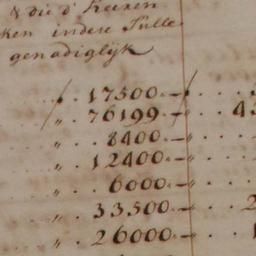 & die d' Heeren
ken indese Tulle
genadiglijk
f . 17500.—
„ . 76199.— 43
„ . 8400.—
„ . 12400.—
„ . 6000.—
„ . 33500.— 2
„ . 26000.— 1